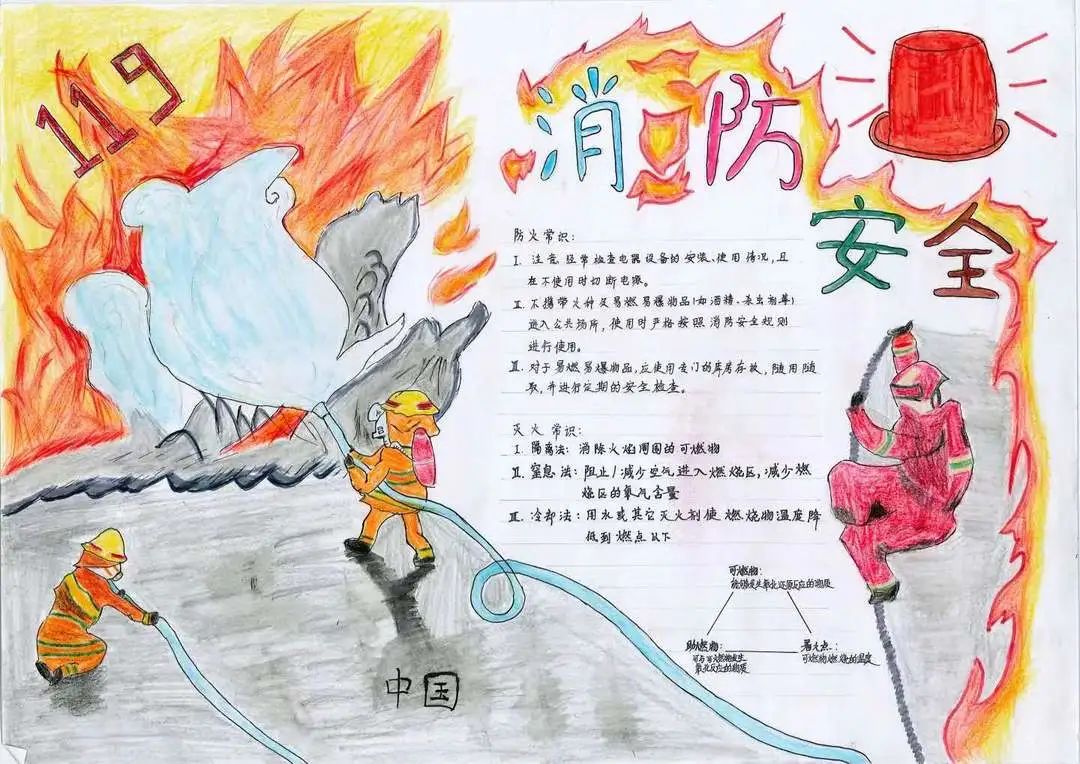 119
消防
安全
防火常识：
I. 注意经常检查电器设备的安装、使用情况，且
在不使用时切断电源。
II. 不携带火种及易燃易爆物品(如酒精、杀虫剂等)
进入公共场所，使用时严格按照消防安全规则
进行使用。
III. 对于易燃易爆物品，应使用专门的库房存放，随用随
取，并进行定期的安全检查。
灭火常识：
I. 隔离法：消除火焰周围的可燃物
II. 窒息法：阻止/减少空气进入燃烧区，减少燃
烧区的氧气含量
III. 冷却法：用水或其它灭火剂使燃烧物温度降
低到燃点以下
可燃物：
能够发生氧化还原反应的物质
助燃物：
可与可燃物发生
氧化反应的物质
着火点：
可燃物燃烧的温度
中国